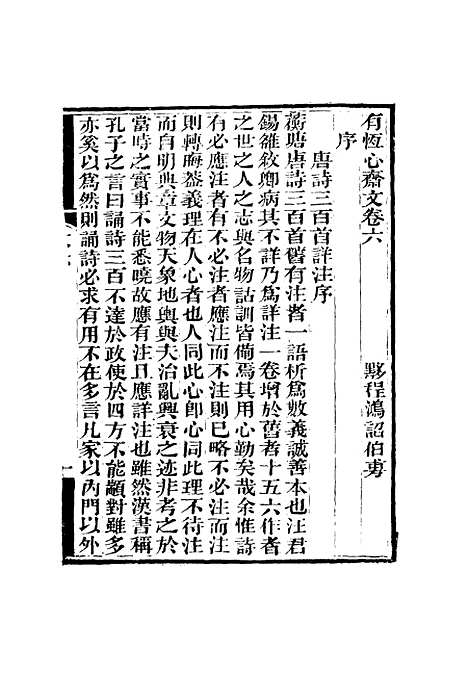 有恆心齋文卷六
黟程鴻詔伯旉
序
唐詩三百首詳注序
蘅塘唐詩三百首舊有注者一語析爲數義誠善本也汪君
錫雒敘卿病其不詳乃爲詳注一卷增於舊者十五六作者
之世之人之志與名物詁訓皆備焉其用心勤矣哉余惟詩
有必應注者有不必注者應注而不注則已略不必注而注
則轉晦蓋義理在人心者也人同此心卽心同此理不待注
而自明典章文物天象地輿與夫治亂興衰之迹非考之於
當時之實事不能悉曉故應有注且應詳注也雖然漢書稱
孔子之言曰誦詩三百不達於政使於四方不能顓對雖多
亦奚以爲然則誦詩必求有用不在多言凡家以內門以外